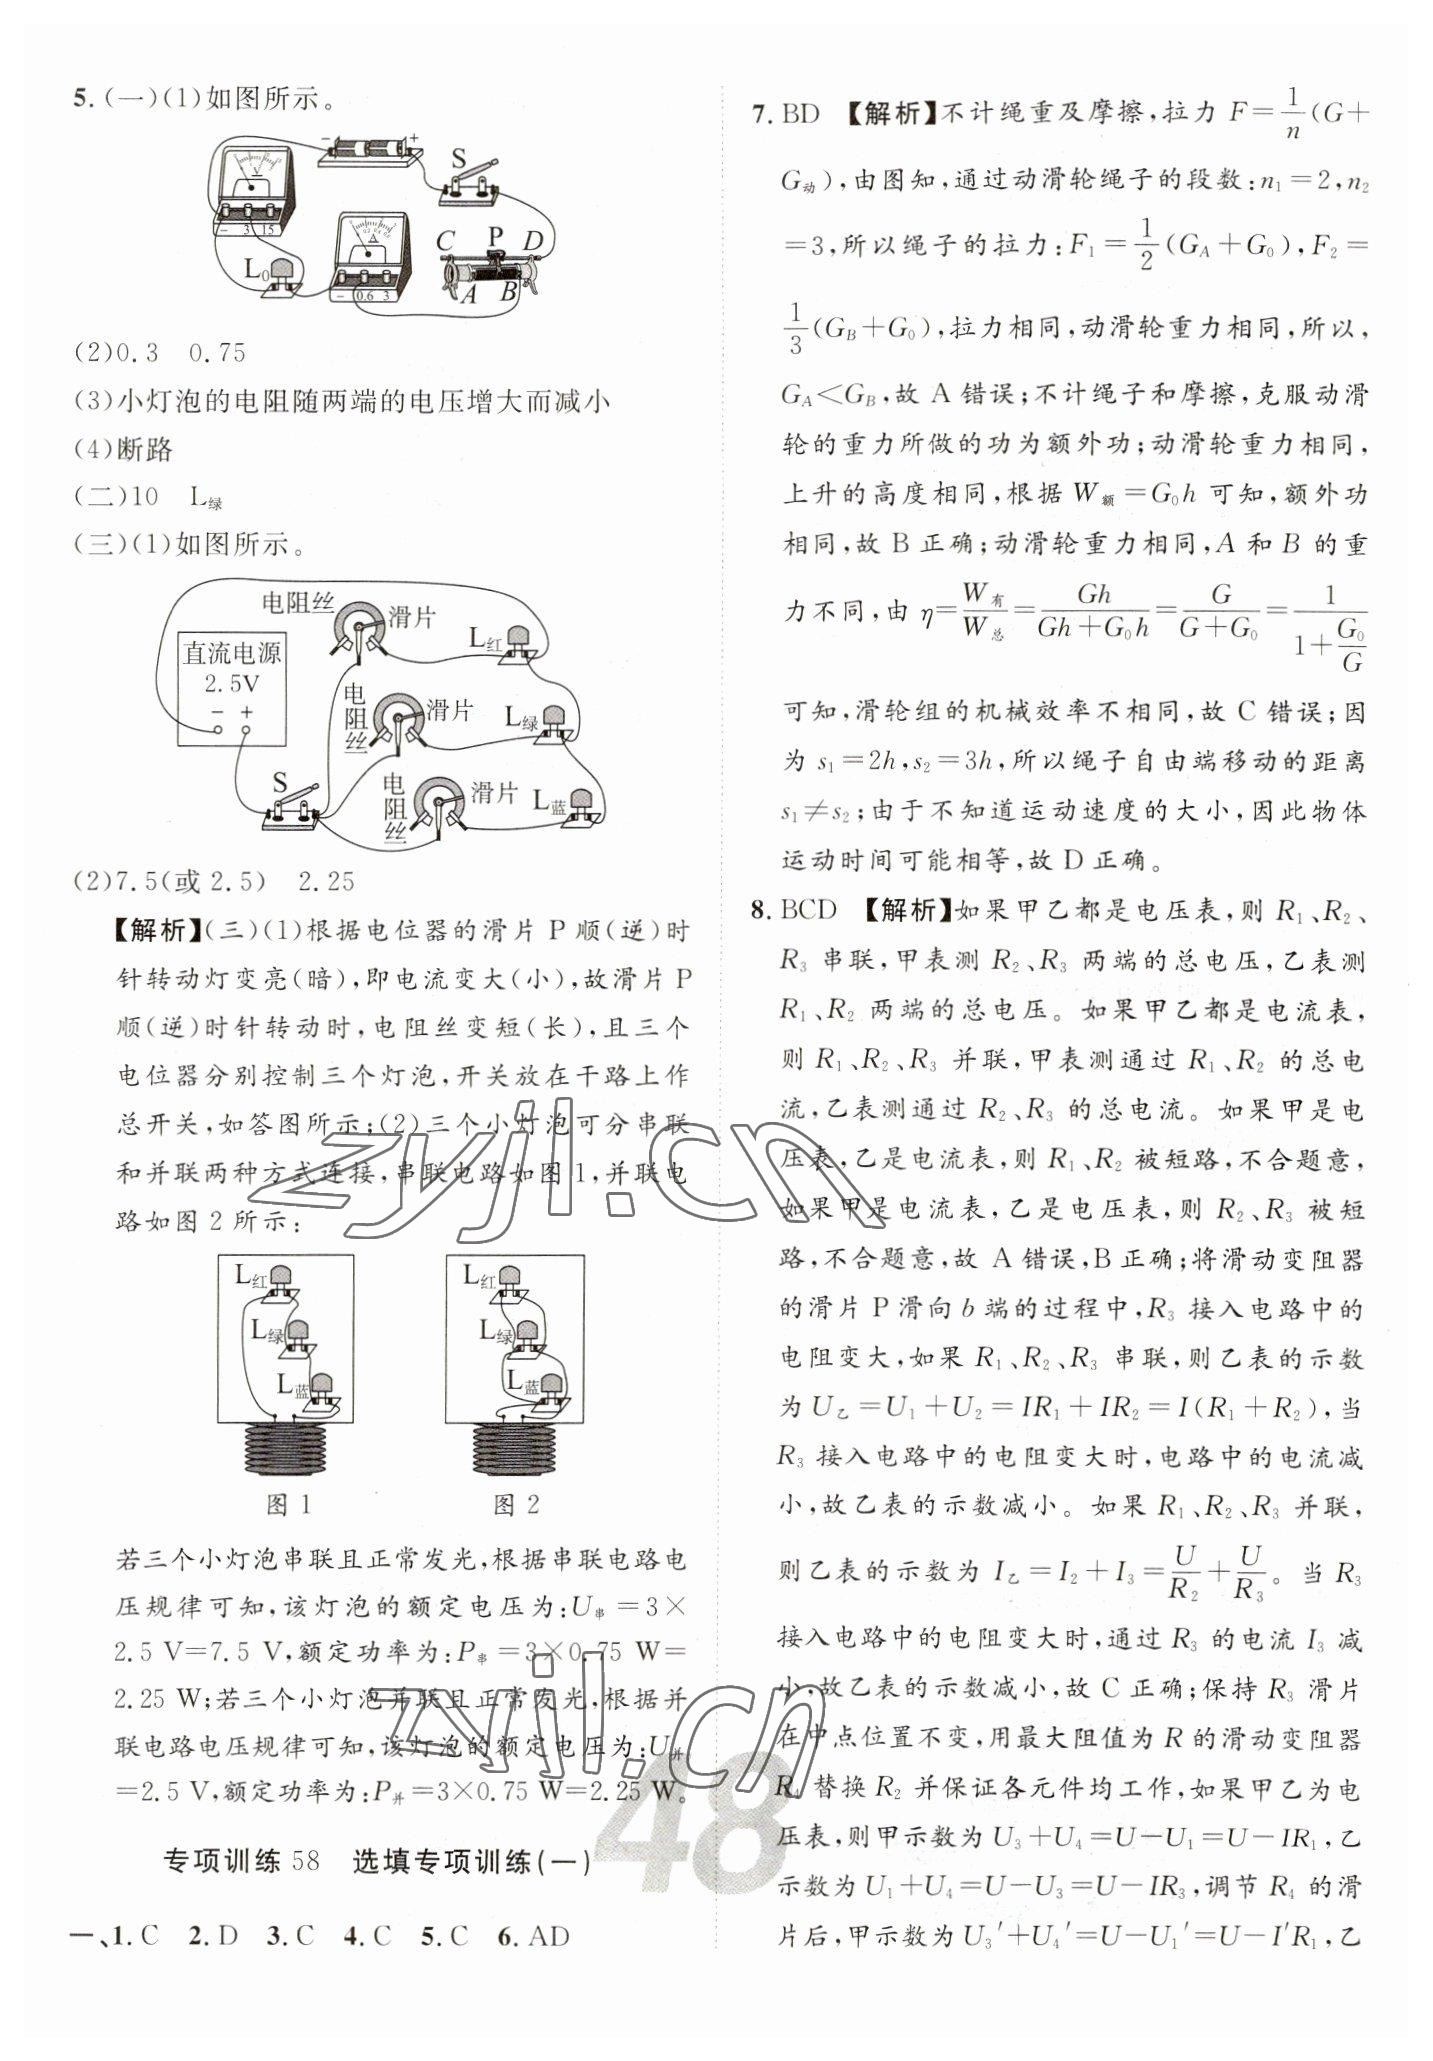 5.(一)(1)如图所示。
V
- 3 15
- +
S
A
- 0.6 3
C P D
A B
L₀
(2)0.3 0.75
(3)小灯泡的电阻随两端的电压增大而减小
(4)断路
(二)10 L绿
(三)(1)如图所示。
电阻丝 滑片 L红
直流电源
2.5V
- +
电阻丝 滑片 L绿
S
电阻丝 滑片 L蓝
(2)7.5(或 2.5) 2.25
【解析】(三)(1)根据电位器的滑片 P 顺(逆)时
针转动灯变亮(暗),即电流变大(小),故滑片 P
顺(逆)时针转动时,电阻丝变短(长),且三个
电位器分别控制三个灯泡,开关放在干路上作
总开关,如答图所示;(2)三个小灯泡可分串联
和并联两种方式连接,串联电路如图 1,并联电
路如图 2 所示:
L红
L绿
L蓝
图 1
L红
L绿
L蓝
图 2
若三个小灯泡串联且正常发光,根据串联电路电
压规律可知,该灯泡的额定电压为:U串=3×
2.5 V=7.5 V,额定功率为:P串=3×0.75 W=
2.25 W;若三个小灯泡并联且正常发光,根据并
联电路电压规律可知,该灯泡的额定电压为:U并
=2.5 V,额定功率为:P并=3×0.75 W=2.25 W。
专项训练 58 选填专项训练(一)
一、1. C 2. D 3. C 4. C 5. C 6. AD
7. BD 【解析】不计绳重及摩擦,拉力 F=1/n(G+
G动),由图知,通过动滑轮绳子的段数:n₁=2,n₂
=3,所以绳子的拉力:F₁=1/2(G_A+G₀),F₂=
1/3(G_B+G₀),拉力相同,动滑轮重力相同,所以,
G_A<G_B,故 A 错误;不计绳子和摩擦,克服动滑
轮的重力所做的功为额外功;动滑轮重力相同,
上升的高度相同,根据 W额=G₀h 可知,额外功
相同,故 B 正确;动滑轮重力相同,A 和 B 的重
力不同,由 η=W有/W总=Gh/(Gh+G₀h)=G/(G+G₀)=1/(1+G₀/G)
可知,滑轮组的机械效率不相同,故 C 错误;因
为 s₁=2h,s₂=3h,所以绳子自由端移动的距离
s₁≠s₂;由于不知道运动速度的大小,因此物体
运动时间可能相等,故 D 正确。
8. BCD 【解析】如果甲乙都是电压表,则 R₁、R₂、
R₃ 串联,甲表测 R₂、R₃ 两端的总电压,乙表测
R₁、R₂ 两端的总电压。如果甲乙都是电流表,
则 R₁、R₂、R₃ 并联,甲表测通过 R₁、R₂ 的总电
流,乙表测通过 R₂、R₃ 的总电流。如果甲是电
压表,乙是电流表,则 R₁、R₂ 被短路,不合题意,
如果甲是电流表,乙是电压表,则 R₂、R₃ 被短
路,不合题意,故 A 错误,B 正确;将滑动变阻器
的滑片 P 滑向 b 端的过程中,R₃ 接入电路中的
电阻变大,如果 R₁、R₂、R₃ 串联,则乙表的示数
为 U乙=U₁+U₂=IR₁+IR₂=I(R₁+R₂),当
R₃ 接入电路中的电阻变大时,电路中的电流减
小,故乙表的示数减小。如果 R₁、R₂、R₃ 并联,
则乙表的示数为 I乙=I₂+I₃=U/R₂+U/R₃。当 R₃
接入电路中的电阻变大时,通过 R₃ 的电流 I₃ 减
小,故乙表的示数减小,故 C 正确;保持 R₃ 滑片
在中点位置不变,用最大阻值为 R 的滑动变阻器
R₄ 替换 R₂ 并保证各元件均工作,如果甲乙为电
压表,则甲示数为 U₃+U₄=U-U₁=U-IR₁,乙
示数为 U₁+U₄=U-U₃=U-IR₃,调节 R₄ 的滑
片后,甲示数为 U₃′+U₄′=U-U₁′=U-I′R₁,乙
48
zyjl.cn
zyjl.cn